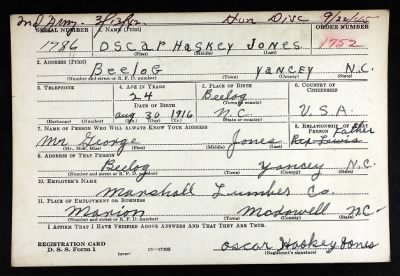 2nd Army 3/12/42 Hon Disc 9/22/45
SERIAL NUMBER 1. NAME (Print) ORDER NUMBER
1786 OSCAR HASKEY JONES 1752
(First) (Middle) (Last)
2. ADDRESS (Print)
Beelog YANCEY N.C.
(Number and street or R. F. D. number) (Town) (County) (State)
3. TELEPHONE 4. AGE IN YEARS 5. PLACE OF BIRTH 6. COUNTRY OF CITIZENSHIP
24 Beelog
DATE OF BIRTH (Town or county)
Aug 30 1916 N.C. U.S.A.
(Exchange) (Number) (Mo.) (Day) (Yr.) (State or country)
7. NAME OF PERSON WHO WILL ALWAYS KNOW YOUR ADDRESS 8. RELATIONSHIP OF THAT PERSON Father
Mr. George Jones
(Mr., Mrs., Miss) (First) (Middle) (Last)
9. ADDRESS OF THAT PERSON
Beelog Yancey N.C.
(Number and street or R. F. D. number) (Town) (County) (State)
10. EMPLOYER'S NAME
Marshall Lumber Co.
11. PLACE OF EMPLOYMENT OR BUSINESS
Marion McDowell NC.
(Number and street or R. F. D. number) (Town) (County) (State)
I AFFIRM THAT I HAVE VERIFIED ABOVE ANSWERS AND THAT THEY ARE TRUE.
REGISTRATION CARD
D. S. S. Form 1 (over) Oscar Haskey Jones
(Registrant's signature)